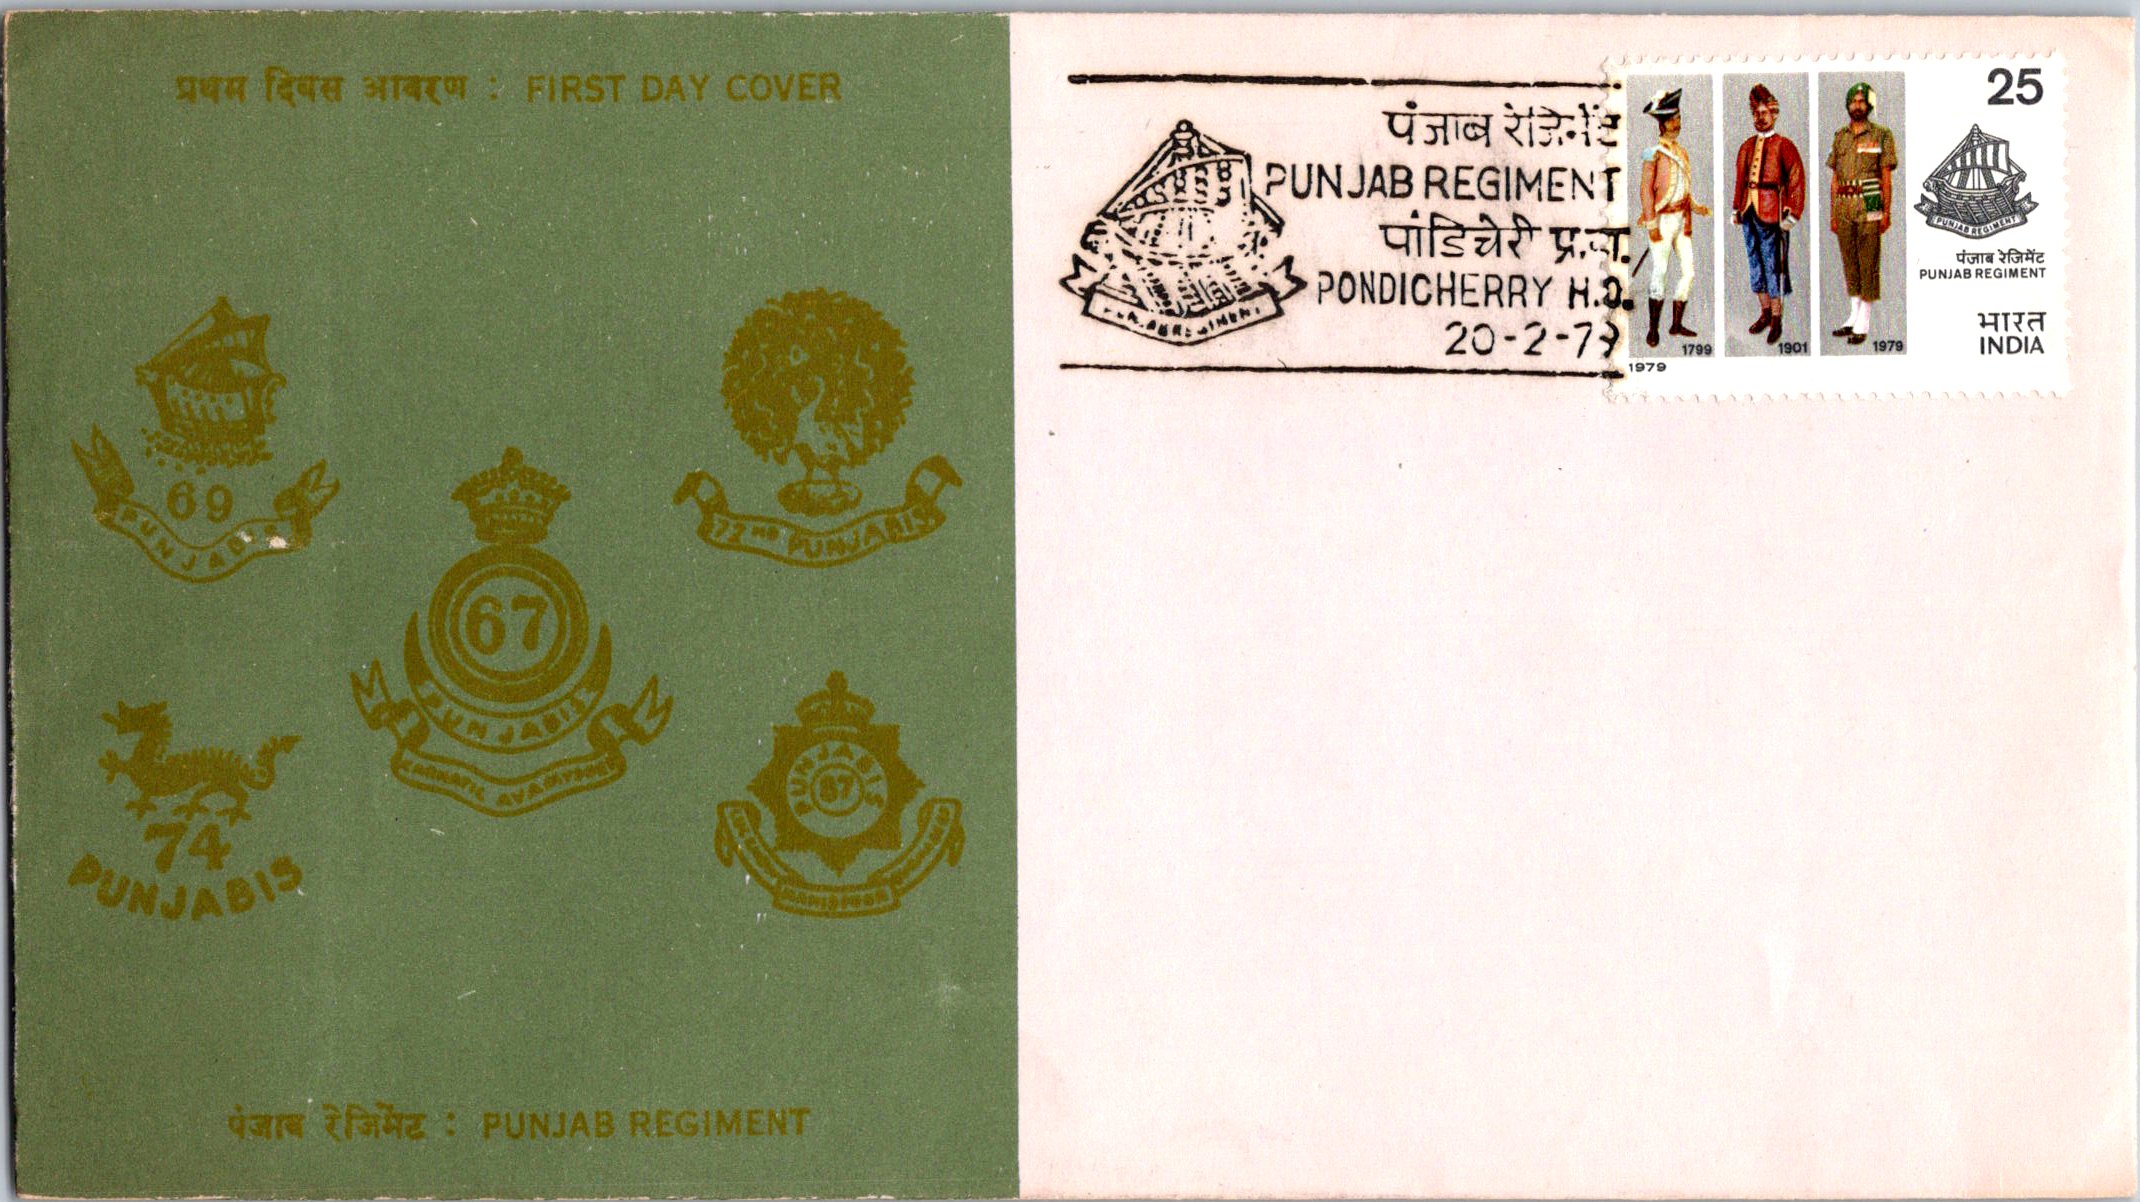 प्रथम दिवस आवरण : FIRST DAY COVER
69
PUNJABIS
72ND PUNJABIS
67
PUNJABIS
74
PUNJABIS
PUNJABIS
87
पंजाब रेजिमेंट : PUNJAB REGIMENT
पंजाब रेजिमेंट
PUNJAB REGIMENT
पांडिचेरी
PONDICHERRY H.O.
20-2-79
PUNJAB REGIMENT
25
PUNJAB REGIMENT
पंजाब रेजिमेंट
PUNJAB REGIMENT
भारत
INDIA
1799
1901
1979
1979